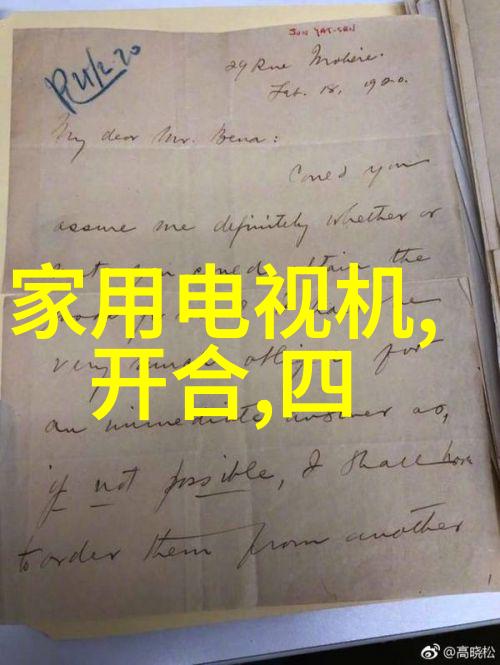 SUN YAT-SEN
R 21/2.20
29 Rue Molière.
Feb. 18, 1920.
My dear Mr. Bena:
Could you
assure me definitely whether or
not you could obtain the
家用电视机,
very much obliged for
开合,四
an immediate answer as,
if not possible, I shall have
to order them from another
@高晓松